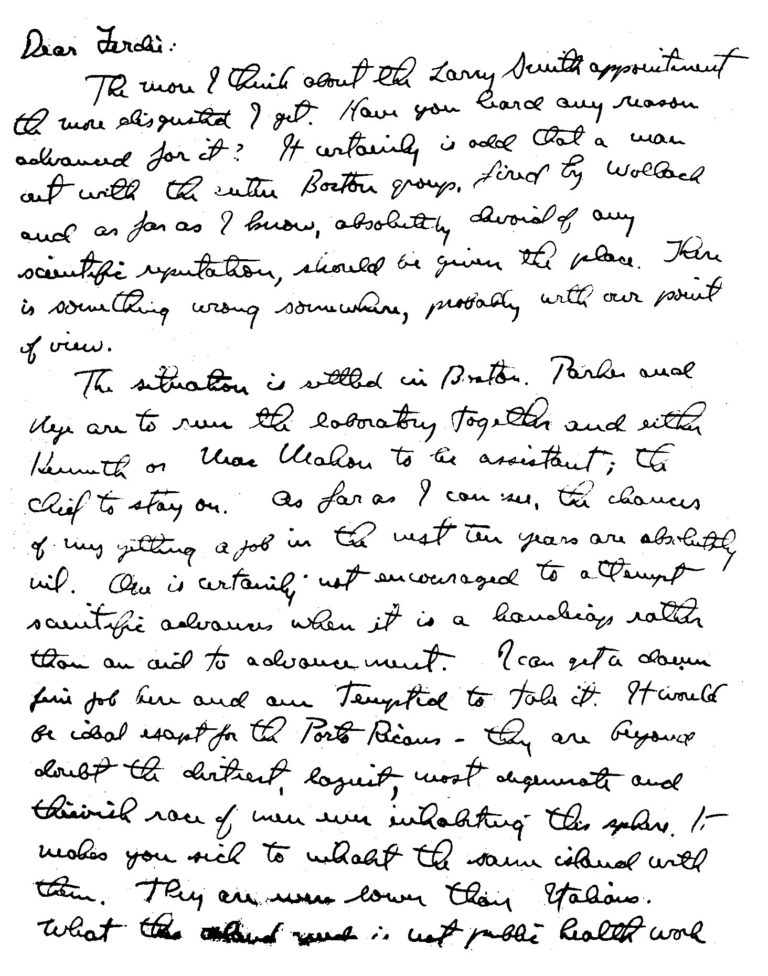 Dear Ferdie:
The more I think about the Larry Smith appointment
the more disgusted I get. Have you heard any reason
advanced for it? It certainly is odd that a man
out with the entire Boston group, fired by Wolbach
and as far as I know, absolutely devoid of any
scientific reputation, should be given the place. There
is something wrong somewhere, probably with our point
of view.
The situation is settled in Boston. Parker and
Nye are to run the laboratory together and either
Kenneth or MacMahon to be assistant; the
chief to stay on. As far as I can see, the chances
of my getting a job in the next ten years are absolutely
nil. One is certainly not encouraged to attempt
scientific advances when it is a handicap rather
than an aid to advancement. I can get a damn
fine job here and am tempted to take it. It would
be ideal except for the Porto Ricans - they are beyond
doubt the dirtiest, laziest, most degenerate and
thievish race of men ever inhabiting this sphere. It
makes you sick to inhabit the same island with
them. They are even lower than Italians.
What the island needs is not public health work